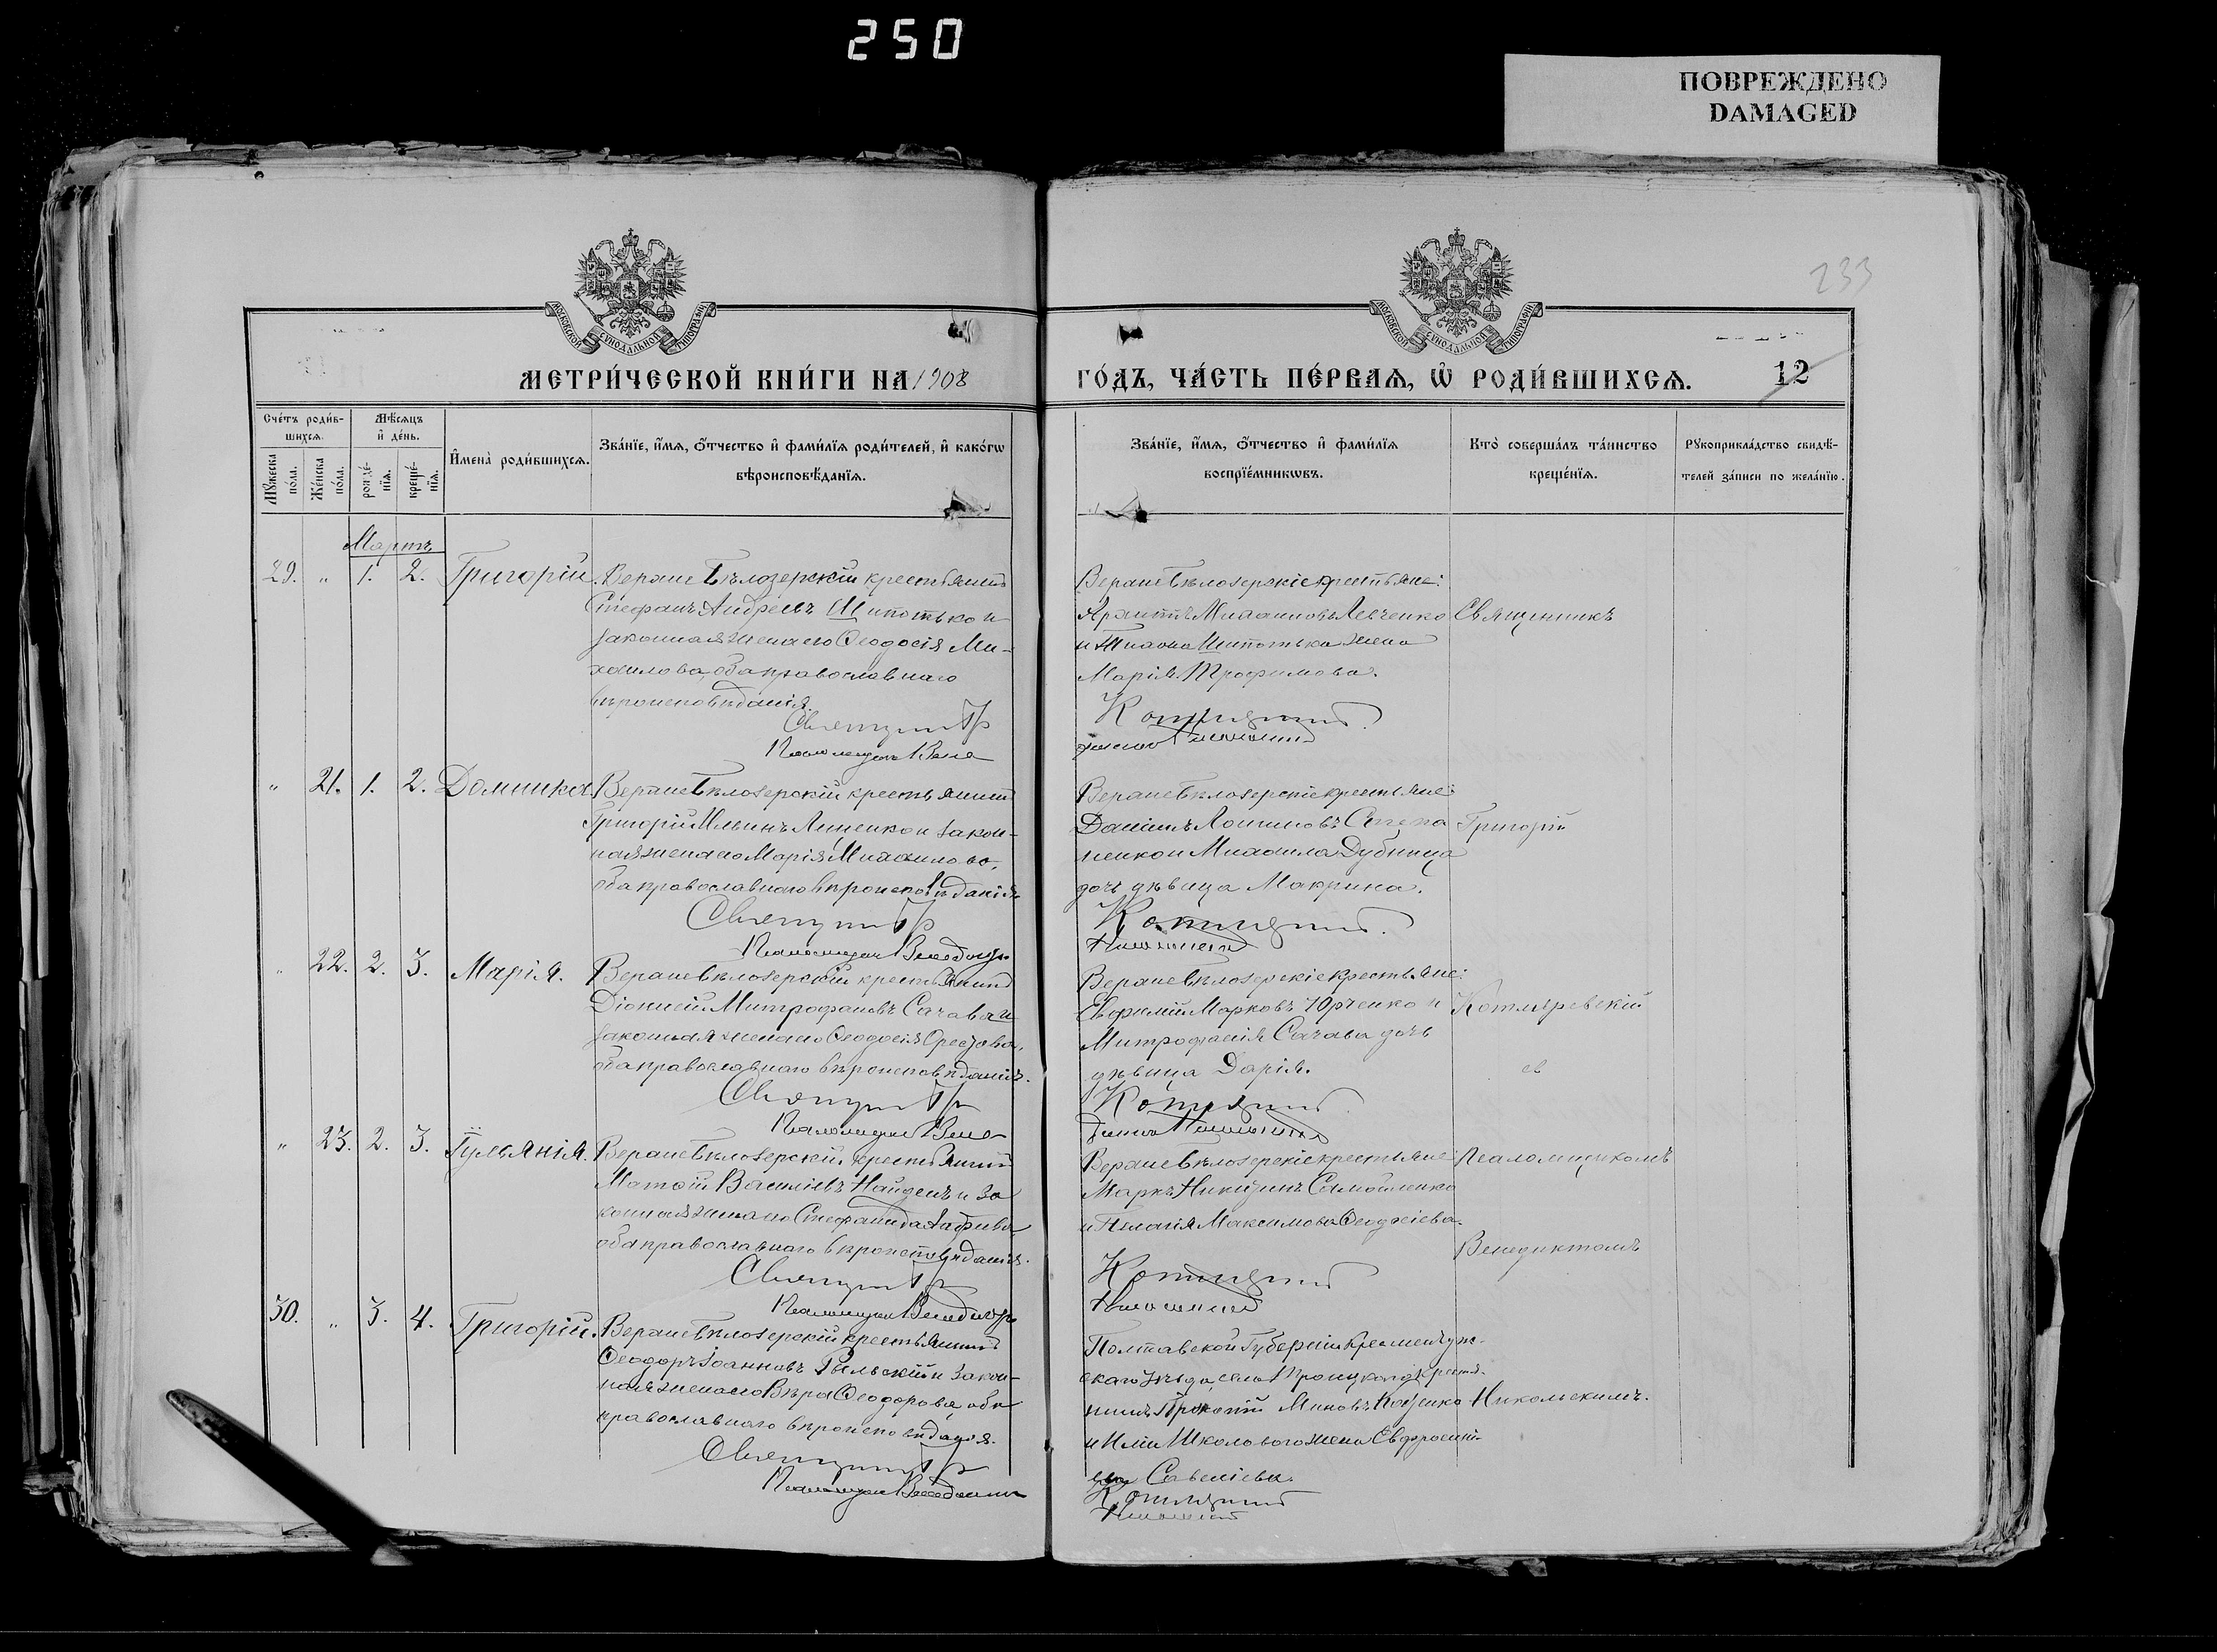 250
ПОВРЕЖДЕНО
DAMAGED
233
МОСКОВСКОЙ СѴНОДАЛЬНОЙ ТИПОГРАФІИ
МОСКОВСКОЙ СѴНОДАЛЬНОЙ ТИПОГРАФІИ
МЕТРИ́ЧЕСКОЙ КНИ́ГИ НА 1908
ГО́ДЪ, ЧА́СТЬ ПЕ́РВАѦ, Ѡ҆ РОДИ́ВШИХСѦ.
12
Сче́тъ роди́в-
шихсѧ.
Мѣ́сѧцъ
и҆ де́нь.
Мꙋ́жеска по́ла.
Же́нска по́ла.
рожде́-
нїѧ.
креще́-
нїѧ.
И҆мена̀ роди́вшихсѧ.
Зва́нїе, и҆́мѧ, ѻ҆́тчество и҆ фами́лїѧ роди́телей, и҆ како́гѡ
вѣроисповѣ́данїѧ.
Зва́нїе, и҆́мѧ, ѻ҆́тчество и҆ фами́лїѧ
воспрїе́мникѡвъ.
Кто̀ соверша́лъ та́инство
креще́нїѧ.
Рꙋкоприкла́дство свидѣ́-
телей за́писи по жела́нїю.
Мартъ
29. " 1. 2. Григорій.
Верхне Бѣлозерскій крестьянинъ
Стефанъ Андреевъ Шипотько и
законная жена его Ѳеодосія Ми-
хаилова, оба православнаго
вѣроисповѣданія.
Священникъ Гр
Псаломщикъ Вене
Верхне Бѣлозерскіе крестьяне:
Левченко
и Шипотька жена
Марія Трофимова.
Священникъ
" 21. 1. 2. Домника.
Верхне Бѣлозерскій крестьянинъ
Григорій Ильинъ Линенко и закон-
ная жена его Марія Михаилова,
оба православнаго вѣроисповѣданія.
Священникъ Гр
Псаломщикъ
Верхне Бѣлозерскіе крестьяне:
Даніилъ Логиновъ Степа
ненко и Михаила Дубинца
дочь дѣвица Макрина.
Григорій
" 22. 2. 3. Марія.
Верхне Бѣлозерскій крестьянинъ
Діонисій Митрофановъ Сачава и
законная жена его Ѳеодосія Орестова,
оба православнаго вѣроисповѣданія.
Священникъ Гр
Псаломщикъ Вене
Верхне Бѣлозерскіе крестьяне:
Евфимій Марковъ Юрченко и
Митрофанія Сачава дочь
дѣвица Дарія.
Котляревскій
съ
" 23. 2. 3. Іуліанія.
Верхне Бѣлозерскій крестьянинъ
Матѳій Василіевъ Найденъ и за
конная жена его Стефанида
оба православнаго вѣроисповѣданія.
Священникъ Гр
Псаломщикъ
Верхне Бѣлозерскіе крестьяне:
Маркъ Никитинъ Самойленко
и Пелагія Максимова Ѳеодосіева.
Псаломщикомъ
Венедиктомъ
30. " 3. 4. Григорій.
Верхне Бѣлозерскій крестьянинъ
Ѳеодоръ Іоанновъ Рыльскій и закон-
ная жена его Вѣра Ѳеодорова, оба
православнаго вѣроисповѣданія.
Священникъ Гр
Псаломщикъ
Полтавской Губерніи Кременчуж-
скаго уѣзда, села Троицкаго крестья-
нинъ Прокопій
и Иліи Школового жена Евфросин-
Савеліева.
Никольскимъ.